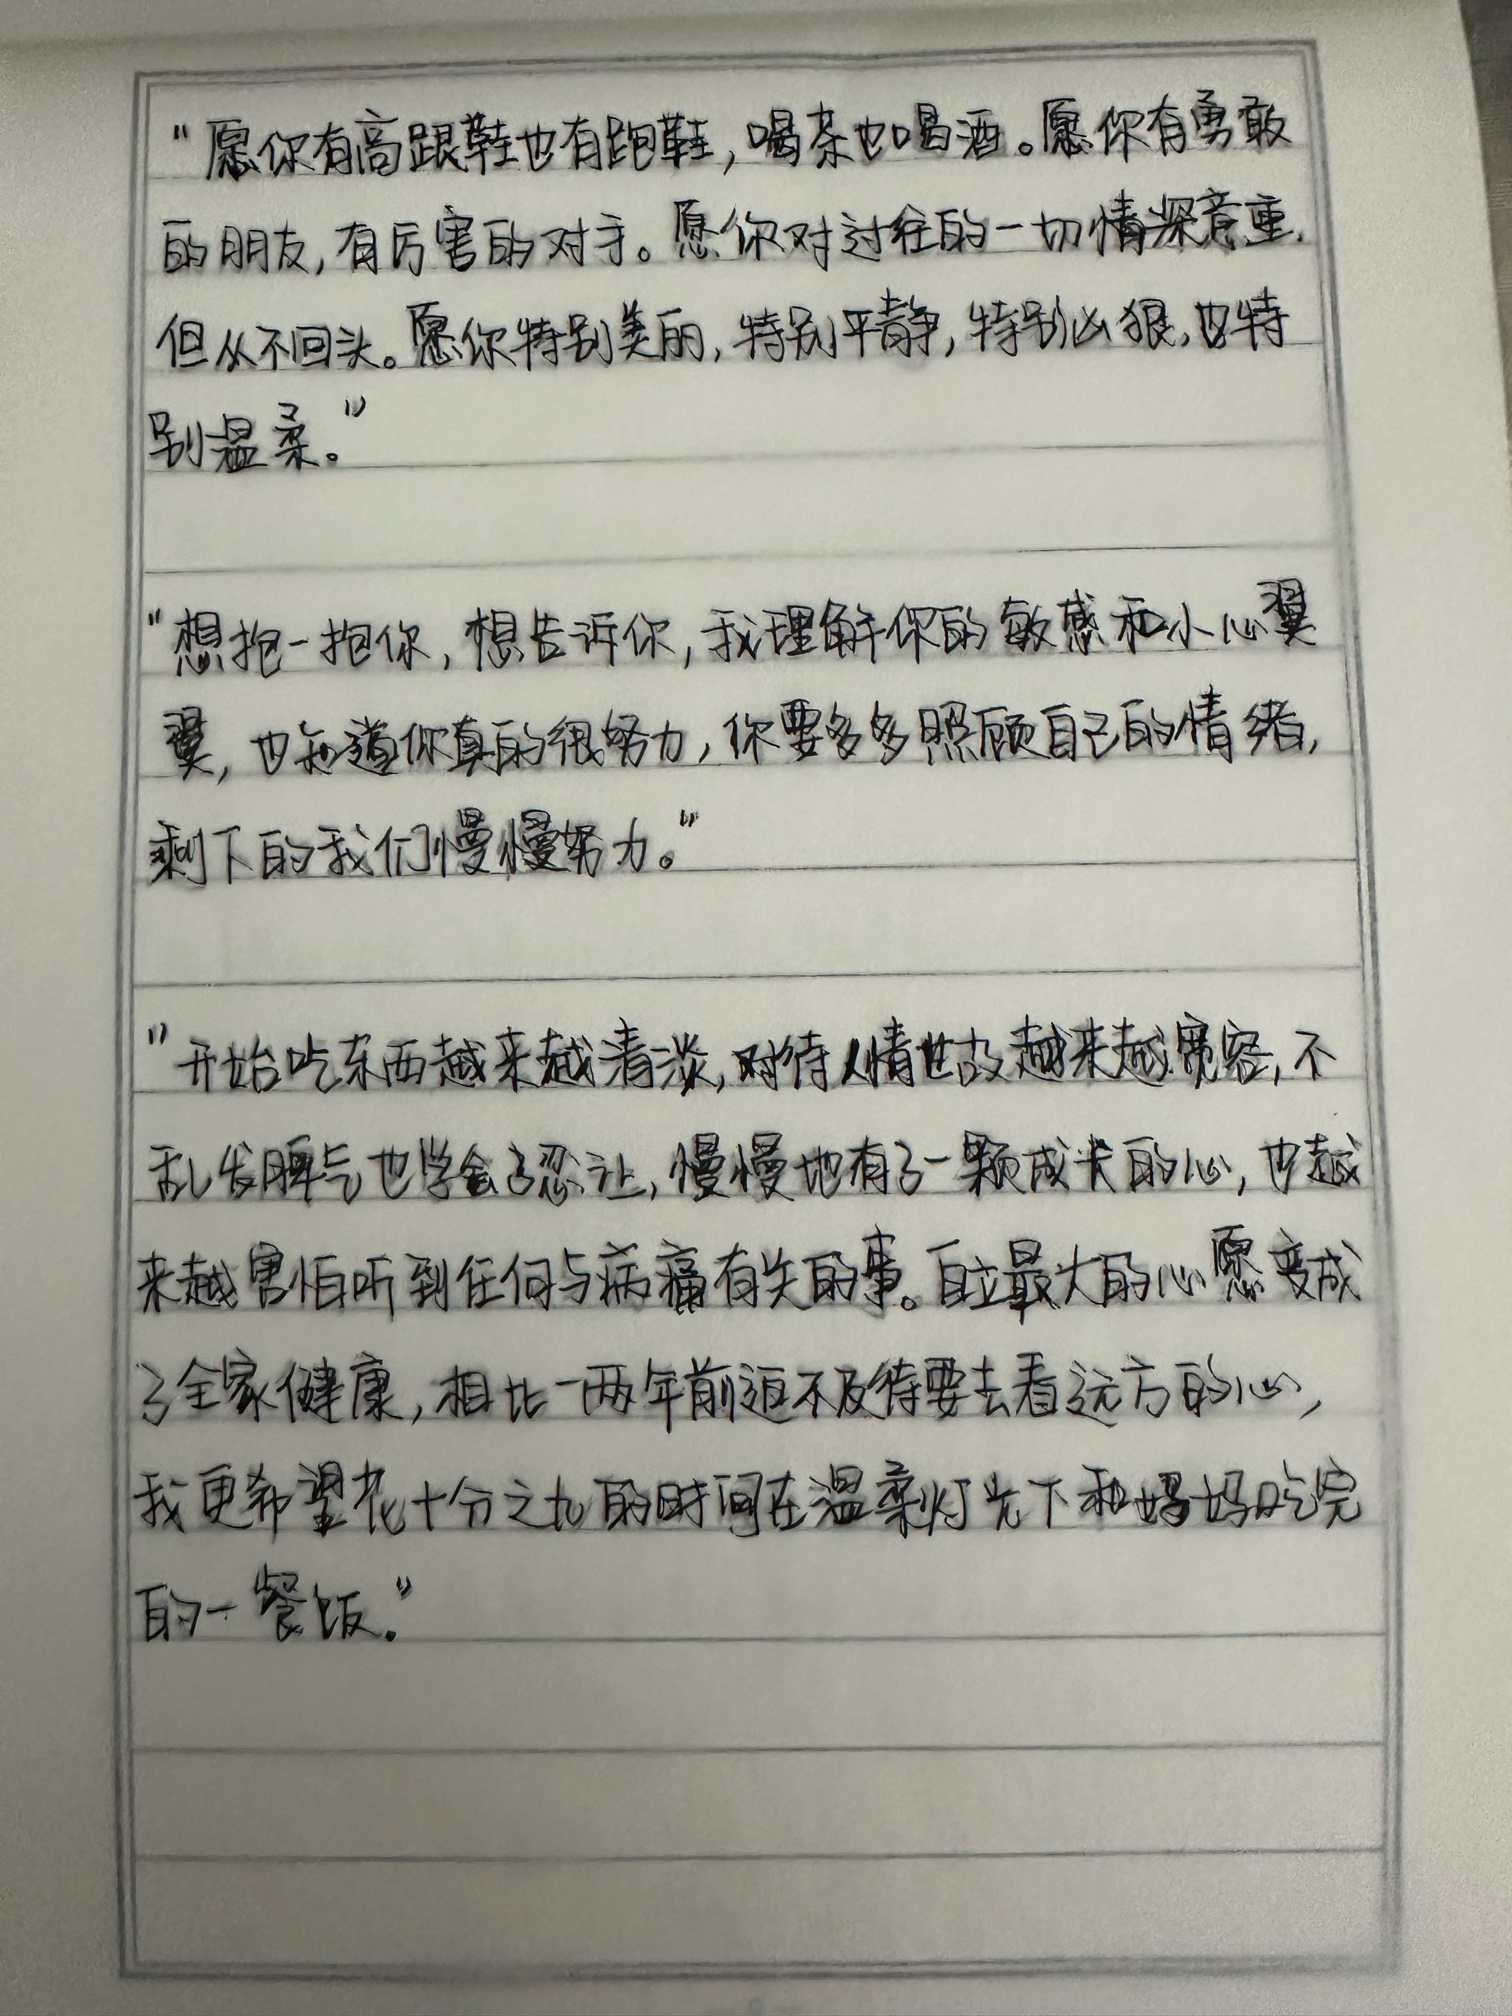 “愿你有高跟鞋也有跑鞋，喝茶也喝酒。愿你有勇敢
的朋友，有厉害的对手。愿你对过往的一切情深意重，
但从不回头。愿你特别美丽，特别平静，特别凶狠，也特
别温柔。”
“想抱一抱你，想告诉你，我理解你的敏感和小心翼
翼，也知道你真的很努力，你要多多照顾自己的情绪，
剩下的我们慢慢努力。”
“开始吃东西越来越清淡，对待人情世故越来越宽容，不
乱发脾气也学会了忍让，慢慢地有了一颗成长的心，也越
来越害怕听到任何与病痛有关的事。自立最大的心愿变成
了全家健康，相比一两年前迫不及待要去看远方的心，
我更希望花十分之九的时间在温柔灯光下和妈妈吃完
的一餐饭。”